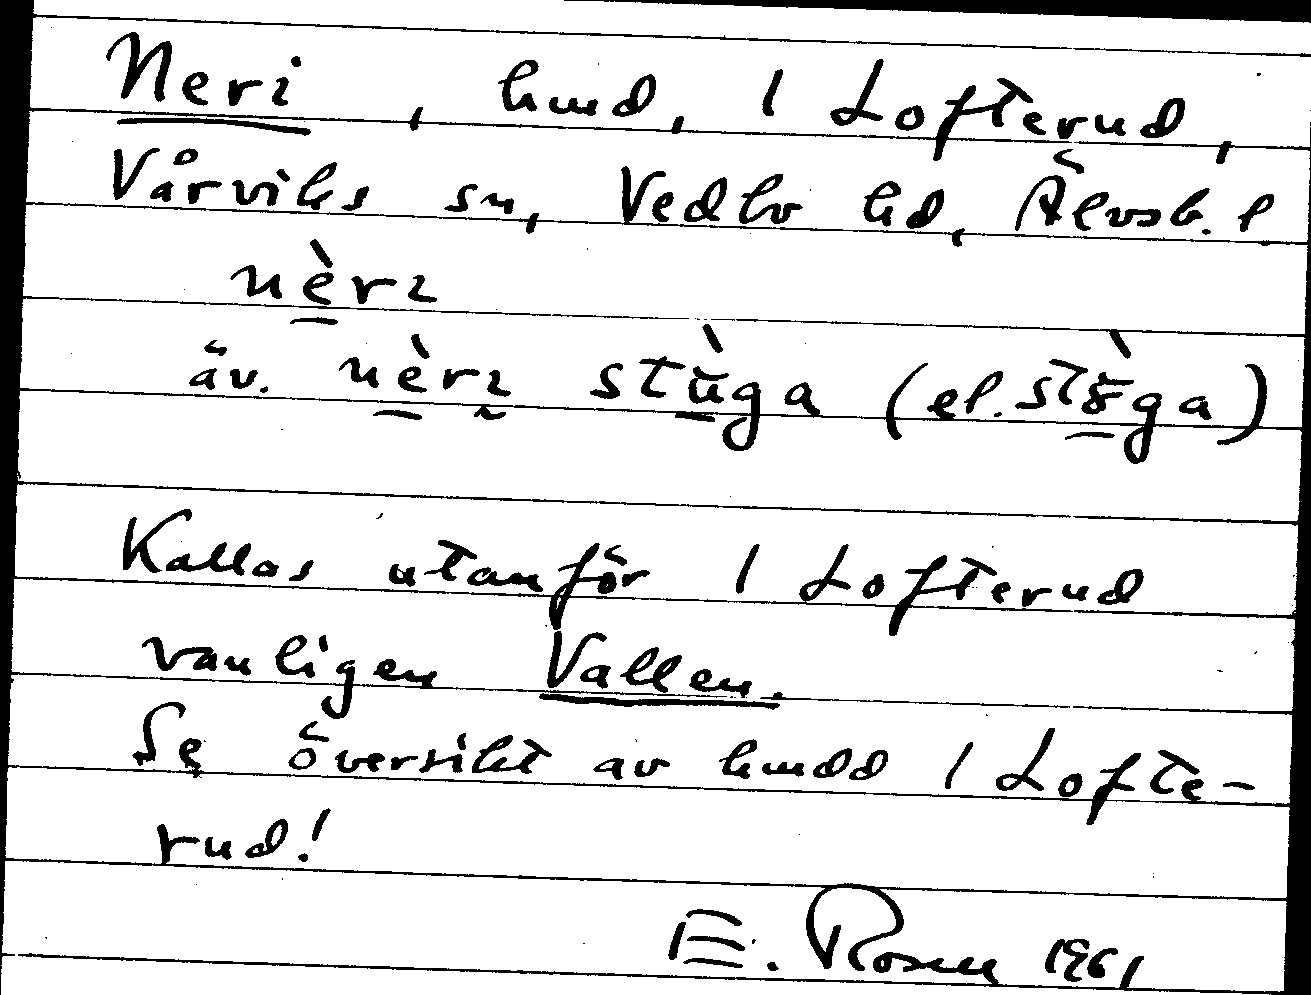 Neri, hmd, 1 Lofterud,
Vårviks sn, Vedbo hd, Älvsb. l
nè̱rɩ
äv. nè̱rɩ̰ stù̱ga (el. stɤ̱̀ga)
Kallas utanför 1 Lofterud
vanligen Vallen.
Se översikt av hmdd 1 Lofte-
rud!
E. Rosen 1961